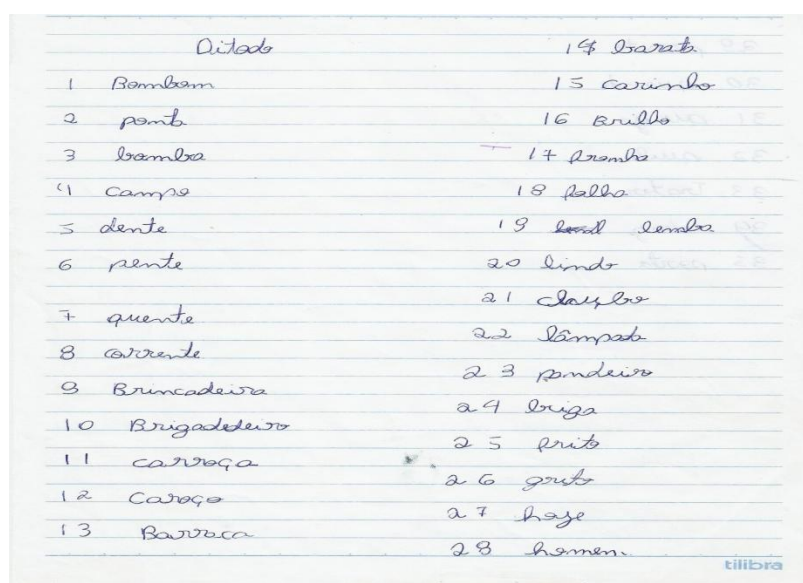 Ditado
1 Bombom
2 ponto
3 bomba
4 Campo
5 dente
6 pente
7 quente
8 corrente
9 Brincadeira
10 Brigadedeiro
11 carroça
12 Caroço
13 Barroca
14 barata
15 carinho
16 Brilho
17
18 palha
19 lemba
20 lindo
21
22 lâmpada
23 pandeiro
24 briga
25 prito
26 grito
27 hoje
28 homen.
tilibra